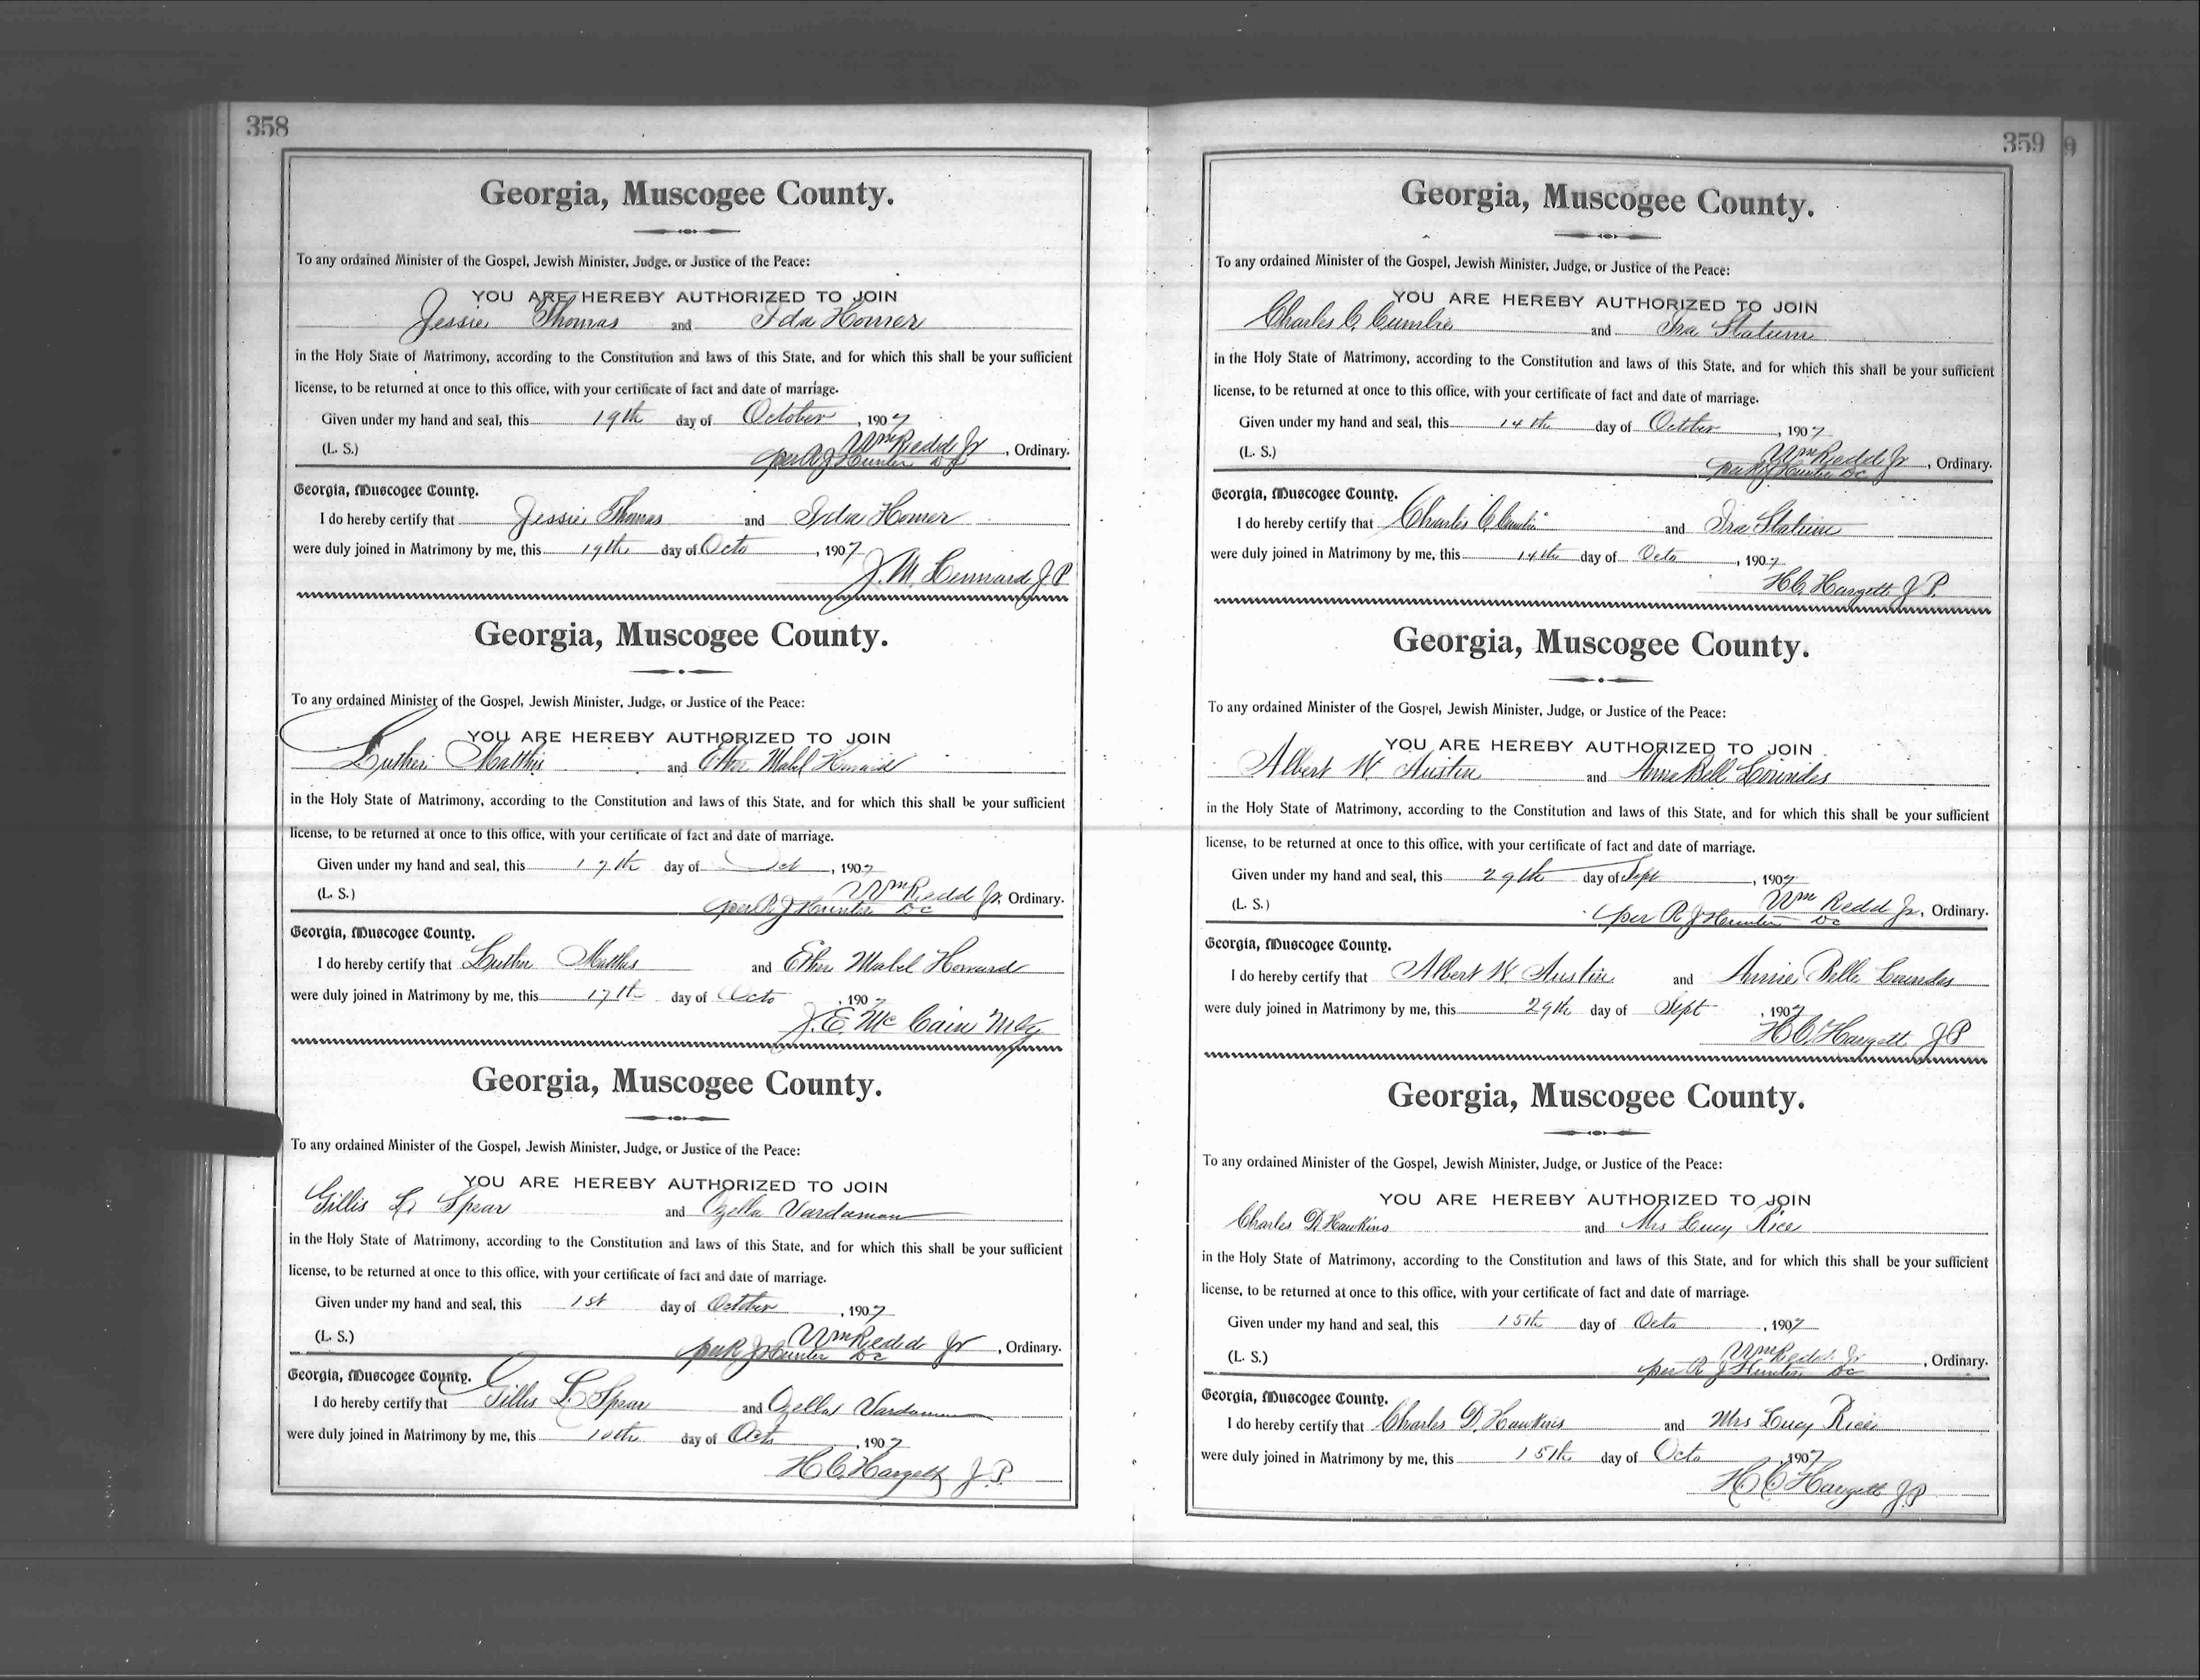 358
Georgia, Muscogee County.
To any ordained Minister of the Gospel, Jewish Minister, Judge, or Justice of the Peace:
YOU ARE HEREBY AUTHORIZED TO JOIN
Jessie Thomas and Ida Homer
in the Holy State of Matrimony, according to the Constitution and laws of this State, and for which this shall be your sufficient
license, to be returned at once to this office, with your certificate of fact and date of marriage.
Given under my hand and seal, this 19th day of October, 1907
(L. S.) Wm Redd Jr, Ordinary.
per R J Hunter DC
Georgia, Muscogee County.
I do hereby certify that Jessie Thomas and Ida Homer
were duly joined in Matrimony by me, this 19th day of Octo, 1907
J. M. Lennard J P
Georgia, Muscogee County.
To any ordained Minister of the Gospel, Jewish Minister, Judge, or Justice of the Peace:
YOU ARE HEREBY AUTHORIZED TO JOIN
Luther Matthis and Mabel Howard
in the Holy State of Matrimony, according to the Constitution and laws of this State, and for which this shall be your sufficient
license, to be returned at once to this office, with your certificate of fact and date of marriage.
Given under my hand and seal, this 17th day of Oct, 1907
(L. S.) Wm Redd Jr, Ordinary.
per R J Hunter DC
Georgia, Muscogee County.
I do hereby certify that Luther Matthis and Mabel Howard
were duly joined in Matrimony by me, this 17th day of Octo, 1907
J. E. McCain M.G
Georgia, Muscogee County.
To any ordained Minister of the Gospel, Jewish Minister, Judge, or Justice of the Peace:
YOU ARE HEREBY AUTHORIZED TO JOIN
Gillis L. Spear and Ozella Vardaman
in the Holy State of Matrimony, according to the Constitution and laws of this State, and for which this shall be your sufficient
license, to be returned at once to this office, with your certificate of fact and date of marriage.
Given under my hand and seal, this 1st day of October, 1907
(L. S.) Wm Redd Jr, Ordinary.
per R J Hunter DC
Georgia, Muscogee County.
I do hereby certify that Gillis L Spear and Ozella Vardaman
were duly joined in Matrimony by me, this 10th day of Octo, 1907
H C Hargett J. P.
359
Georgia, Muscogee County.
To any ordained Minister of the Gospel, Jewish Minister, Judge, or Justice of the Peace:
YOU ARE HEREBY AUTHORIZED TO JOIN
Charles C. and Ira Statum
in the Holy State of Matrimony, according to the Constitution and laws of this State, and for which this shall be your sufficient
license, to be returned at once to this office, with your certificate of fact and date of marriage.
Given under my hand and seal, this 14th day of October, 1907
(L. S.) Wm Redd Jr, Ordinary.
per R J Hunter DC
Georgia, Muscogee County.
I do hereby certify that Charles C and Ira Statum
were duly joined in Matrimony by me, this 14th day of Octo, 1907
H C. Hargett J P.
Georgia, Muscogee County.
To any ordained Minister of the Gospel, Jewish Minister, Judge, or Justice of the Peace:
YOU ARE HEREBY AUTHORIZED TO JOIN
Albert W Austin and Annie Bell Loundes
in the Holy State of Matrimony, according to the Constitution and laws of this State, and for which this shall be your sufficient
license, to be returned at once to this office, with your certificate of fact and date of marriage.
Given under my hand and seal, this 29th day of Sept, 1907
(L. S.) Wm Redd Jr, Ordinary.
per R J Hunter DC
Georgia, Muscogee County.
I do hereby certify that Albert W Austin and Annie Belle Loundes
were duly joined in Matrimony by me, this 29th day of Sept, 1907
H C. Hargett J P
Georgia, Muscogee County.
To any ordained Minister of the Gospel, Jewish Minister, Judge, or Justice of the Peace:
YOU ARE HEREBY AUTHORIZED TO JOIN
Charles D. Hawkins and Mrs Lucy Rice
in the Holy State of Matrimony, according to the Constitution and laws of this State, and for which this shall be your sufficient
license, to be returned at once to this office, with your certificate of fact and date of marriage.
Given under my hand and seal, this 15th day of Octo, 1907
(L. S.) Wm Redd Jr, Ordinary.
per R J Hunter DC
Georgia, Muscogee County.
I do hereby certify that Charles D. Hawkins and Mrs Lucy Rice
were duly joined in Matrimony by me, this 15th day of Octo, 1907
H C Hargett J P